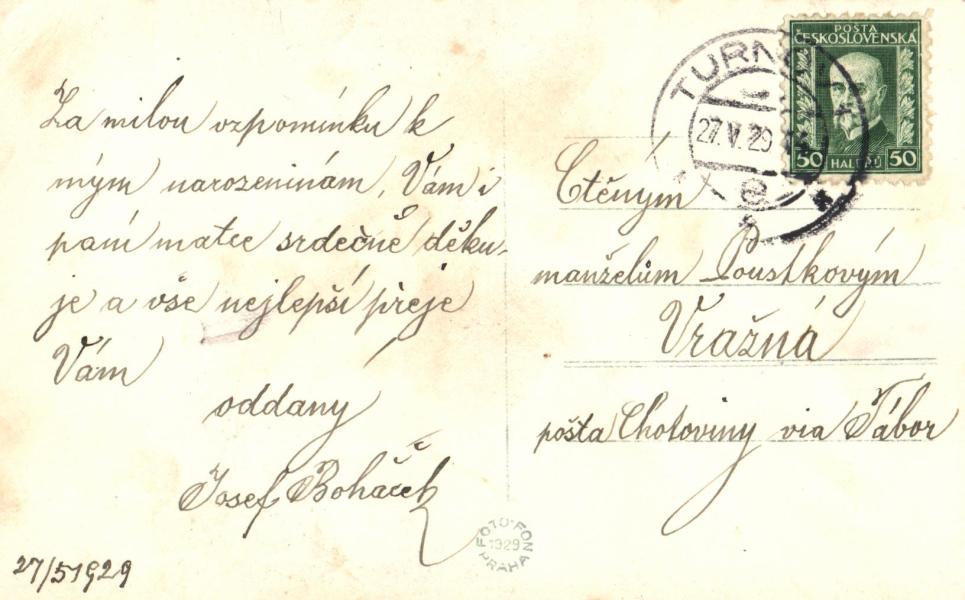 Za milou vzpomínku k
mým narozeninám, Vám i
paní matce srdečně děku-
je a vše nejlepší přeje
Vám
oddaný
Josef Boháček
27/5 1929
POŠTA
ČESKOSLOVENSKÁ
50 HALÉŘŮ 50
TURNOV
27.V.29
e
Ctěným
manželům Poustkovým
Vražná
pošta Chotoviny via Tábor
FOTO-FON
1929
PRAHA